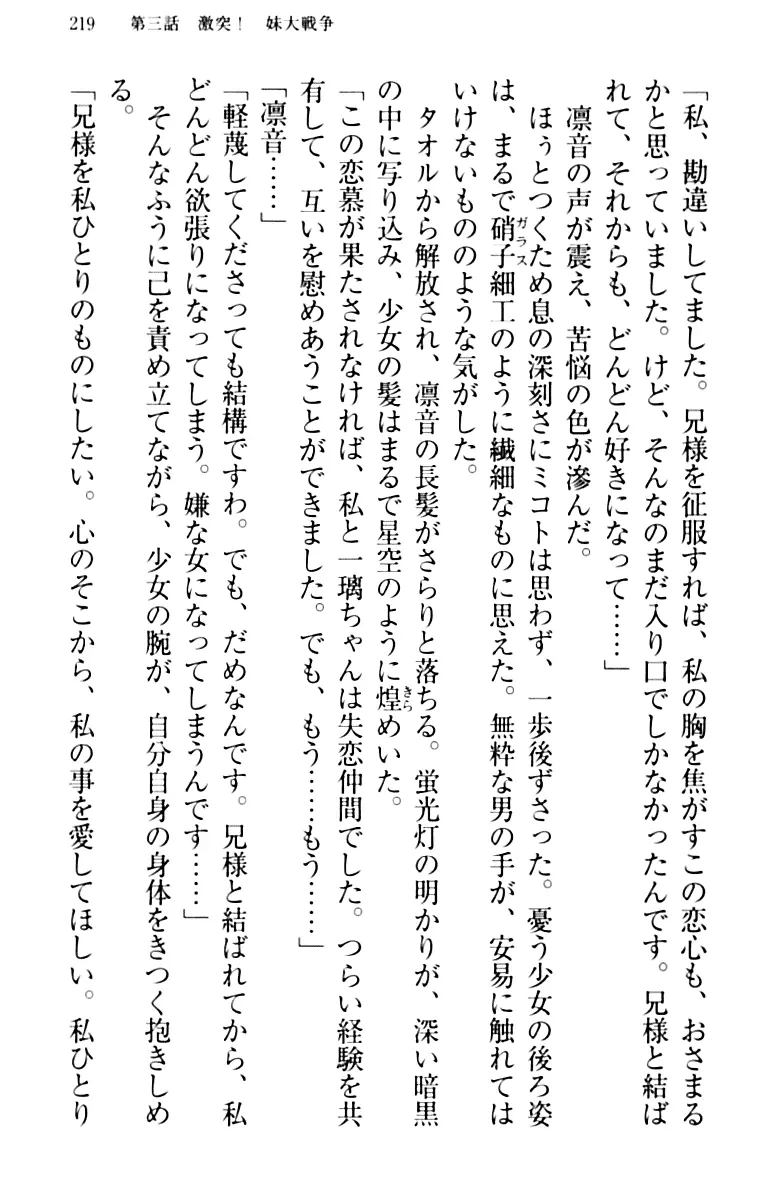 219　第三話　激突！　妹大戦争
「私、勘違いしてました。兄様を征服すれば、私の胸を焦がすこの恋心も、おさまる
かと思っていました。けど、そんなのまだ入り口でしかなかったんです。兄様と結ば
れて、それからも、どんどん好きになって……」
　凛音の声が震え、苦悩の色が滲んだ。
　ほぅとつくため息の深刻さにミコトは思わず、一歩後ずさった。憂う少女の後ろ姿
は、まるで硝子細工のように繊細なものに思えた。無粋な男の手が、安易に触れては
いけないもののような気がした。
　タオルから解放され、凛音の長髪がさらりと落ちる。蛍光灯の明かりが、深い暗黒
の中に写り込み、少女の髪はまるで星空のように煌めいた。
「この恋慕が果たされなければ、私と一璃ちゃんは失恋仲間でした。つらい経験を共
有して、互いを慰めあうことができました。でも、もう……もう……」
「凛音……」
「軽蔑してくださっても結構ですわ。でも、だめなんです。兄様と結ばれてから、私
どんどん欲張りになってしまう。嫌な女になってしまうんです……」
　そんなふうに己を責め立てながら、少女の腕が、自分自身の身体をきつく抱きしめ
る。
「兄様を私ひとりのものにしたい。心のそこから、私の事を愛してほしい。私ひとり